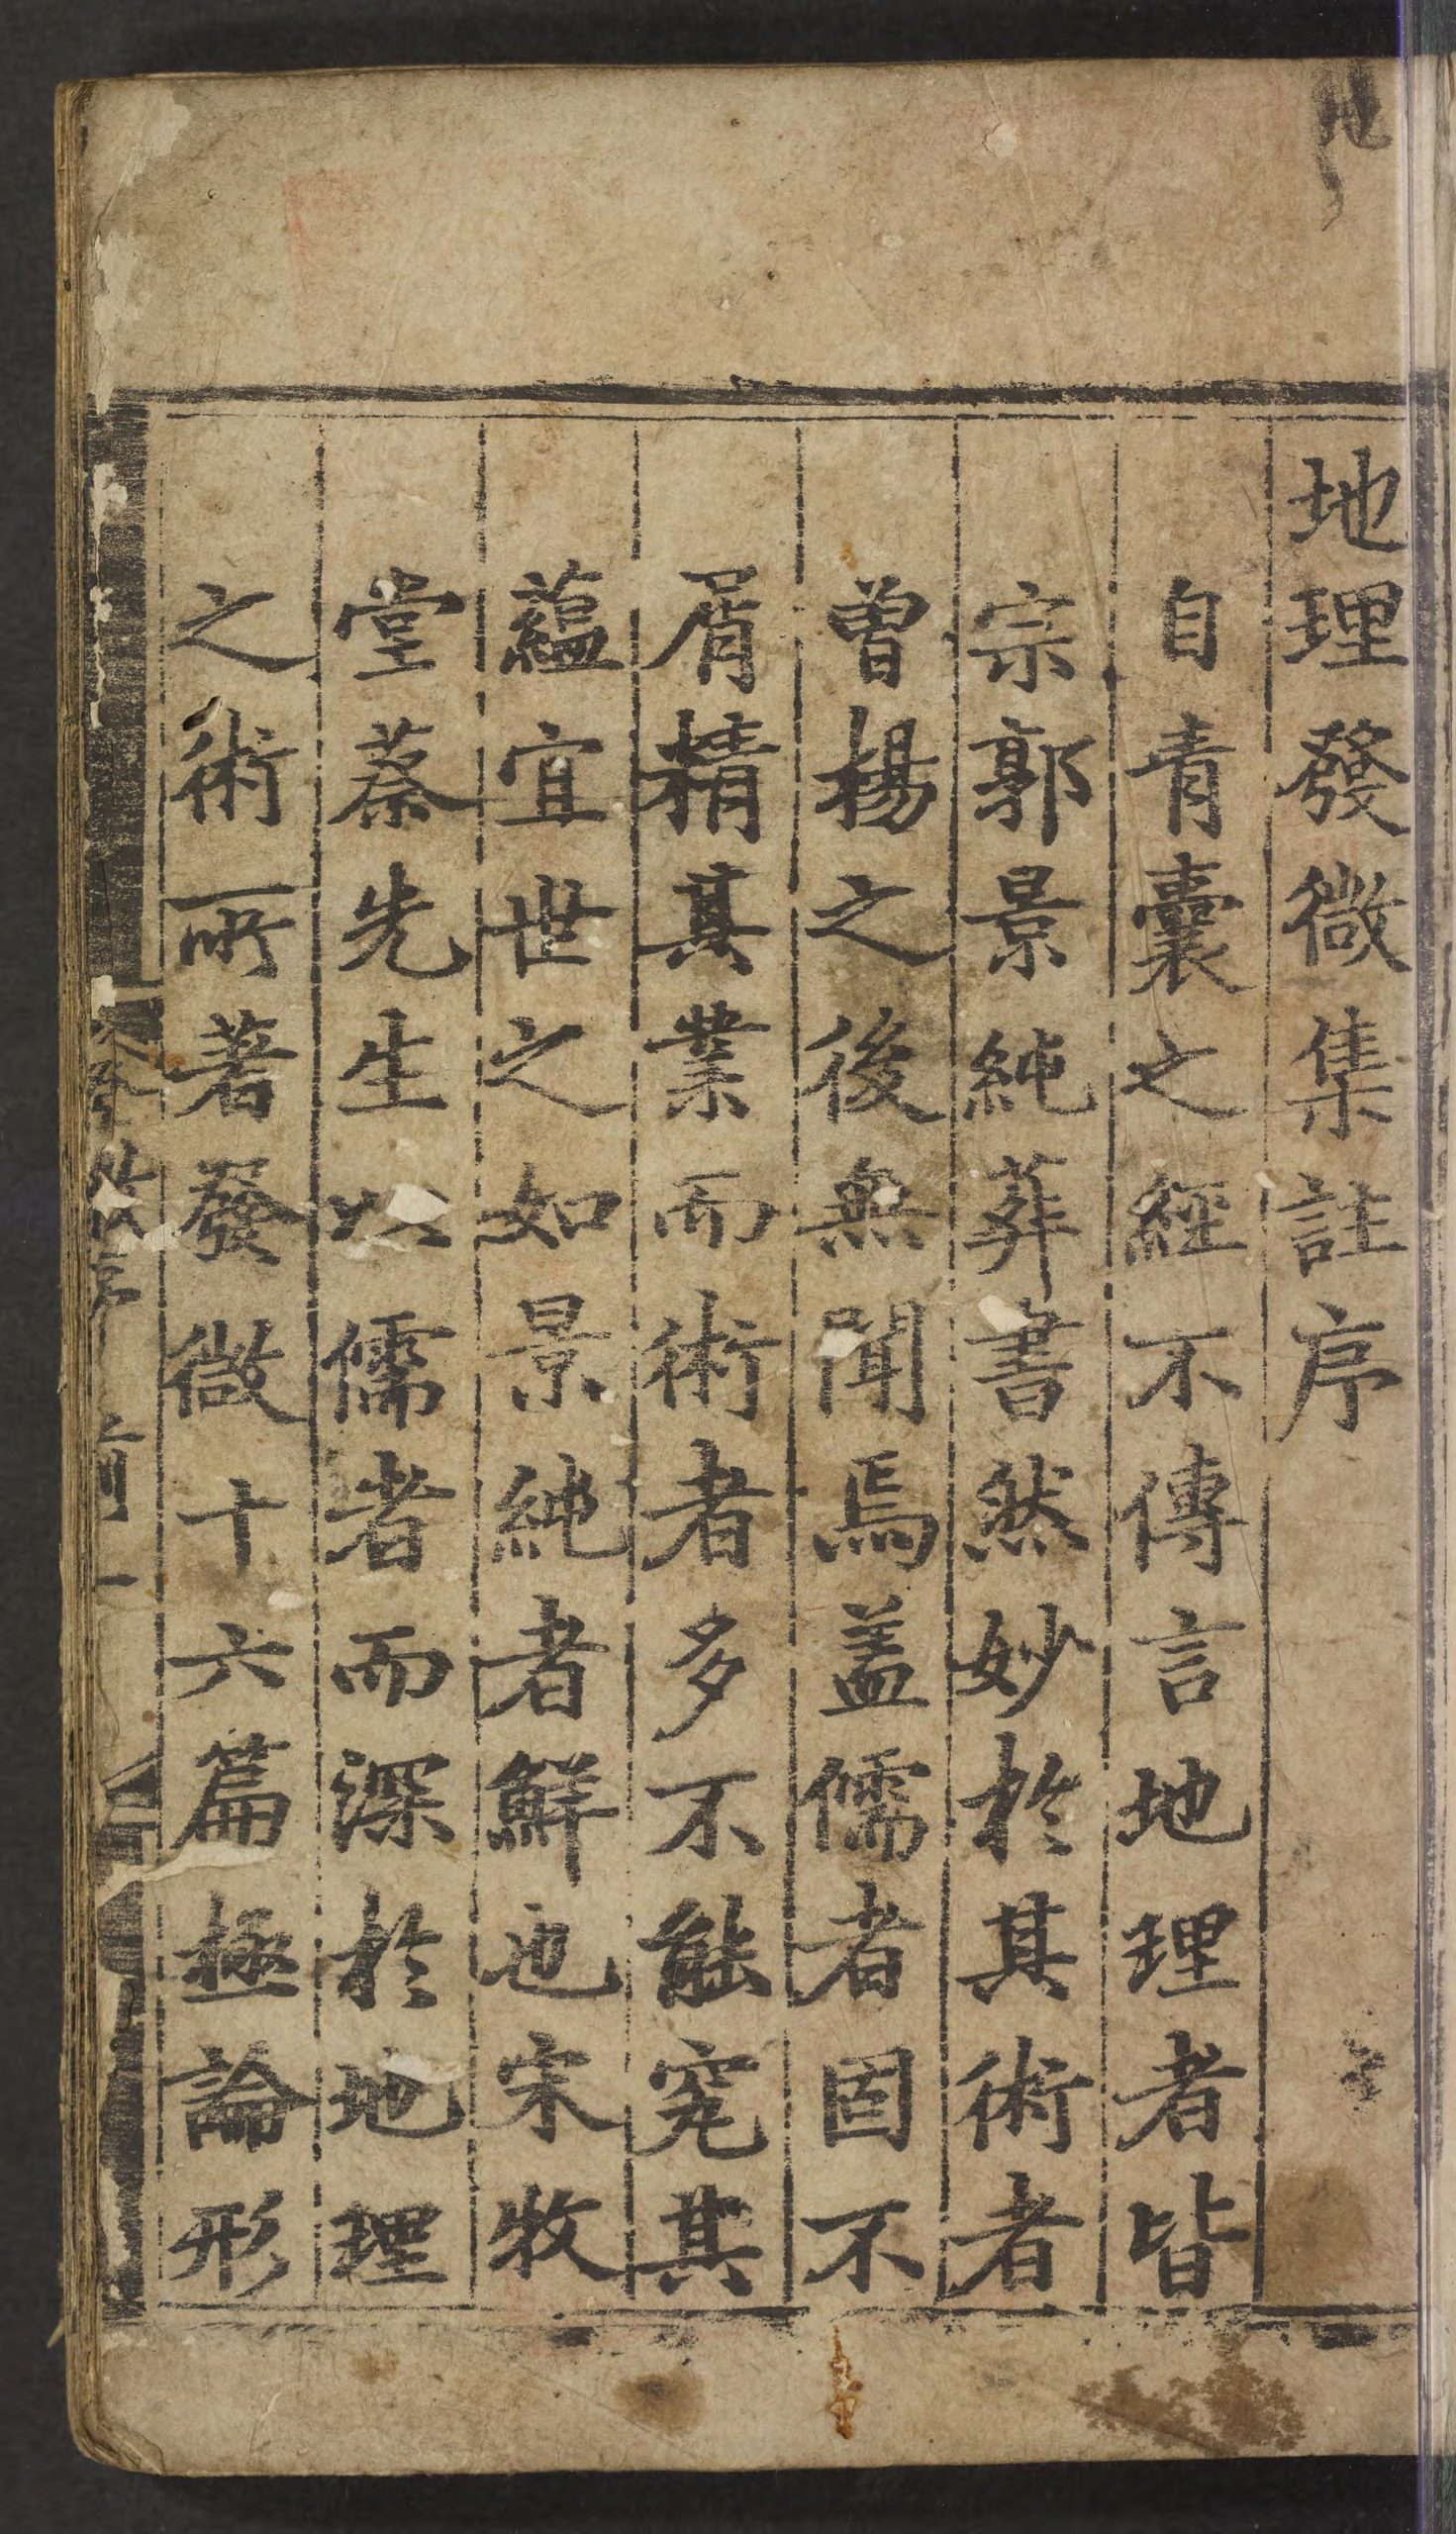 地理發微集註序
自青囊之經不傳言地理者皆
宗郭景純葬書然妙於其術者
曾楊之後無聞焉盖儒者固不
屑精其業而術者多不能究其
蘊宜世之如景純者鮮也宋牧
堂蔡先生以儒者而深於地理
之術所著發微十六篇極論形